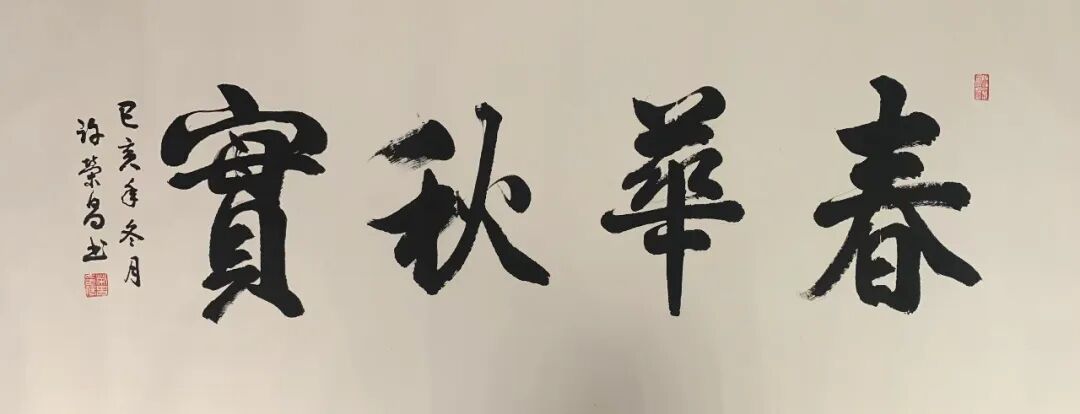 春華秋實
己亥年冬月
許榮昌书